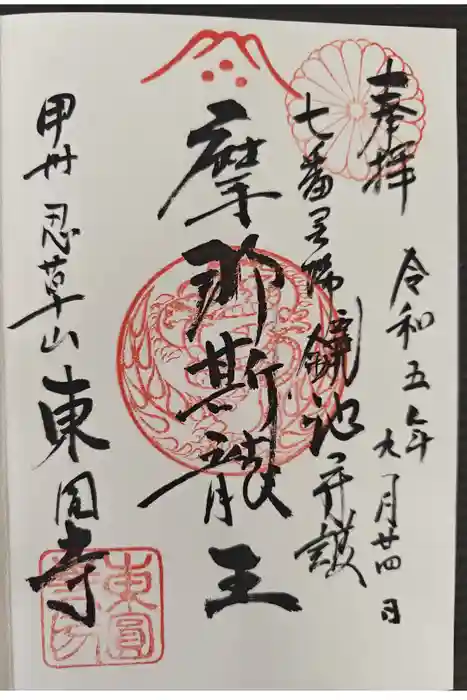 奉拝
令和五年九月廿四日
七番霊場 鏡池守護
摩那斯龍王
甲州 忍草山 東円寺
東圓
寺印